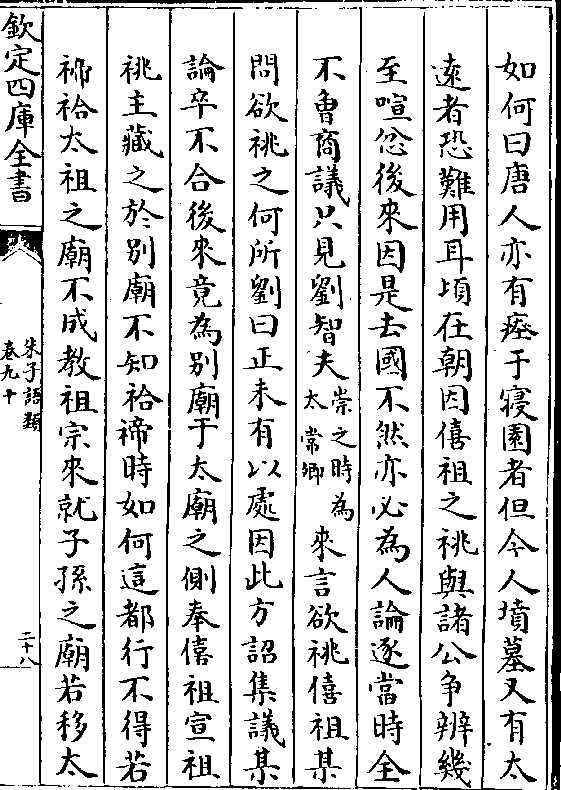 如何曰唐人亦有瘞于寢園者但今人墳墓又有太
逺者恐難用耳頃在朝因僖祖之祧與諸公争辨幾
至喧忿後來因是去國不然亦必為人論逐當時全
不曾商議只見劉智夫崇之時為太常卿來言欲祧僖祖某
問欲祧之何所劉曰正未有以處因此方詔集議某
論卒不合後來竟為别廟于太廟之側奉僖祖宣祖
祧主藏之於别廟不知祫禘時如何這都行不得若
禘祫太祖之廟不成教祖宗來就子孫之廟若移太
欽定四庫全書
朱子語類
卷九十
二十八